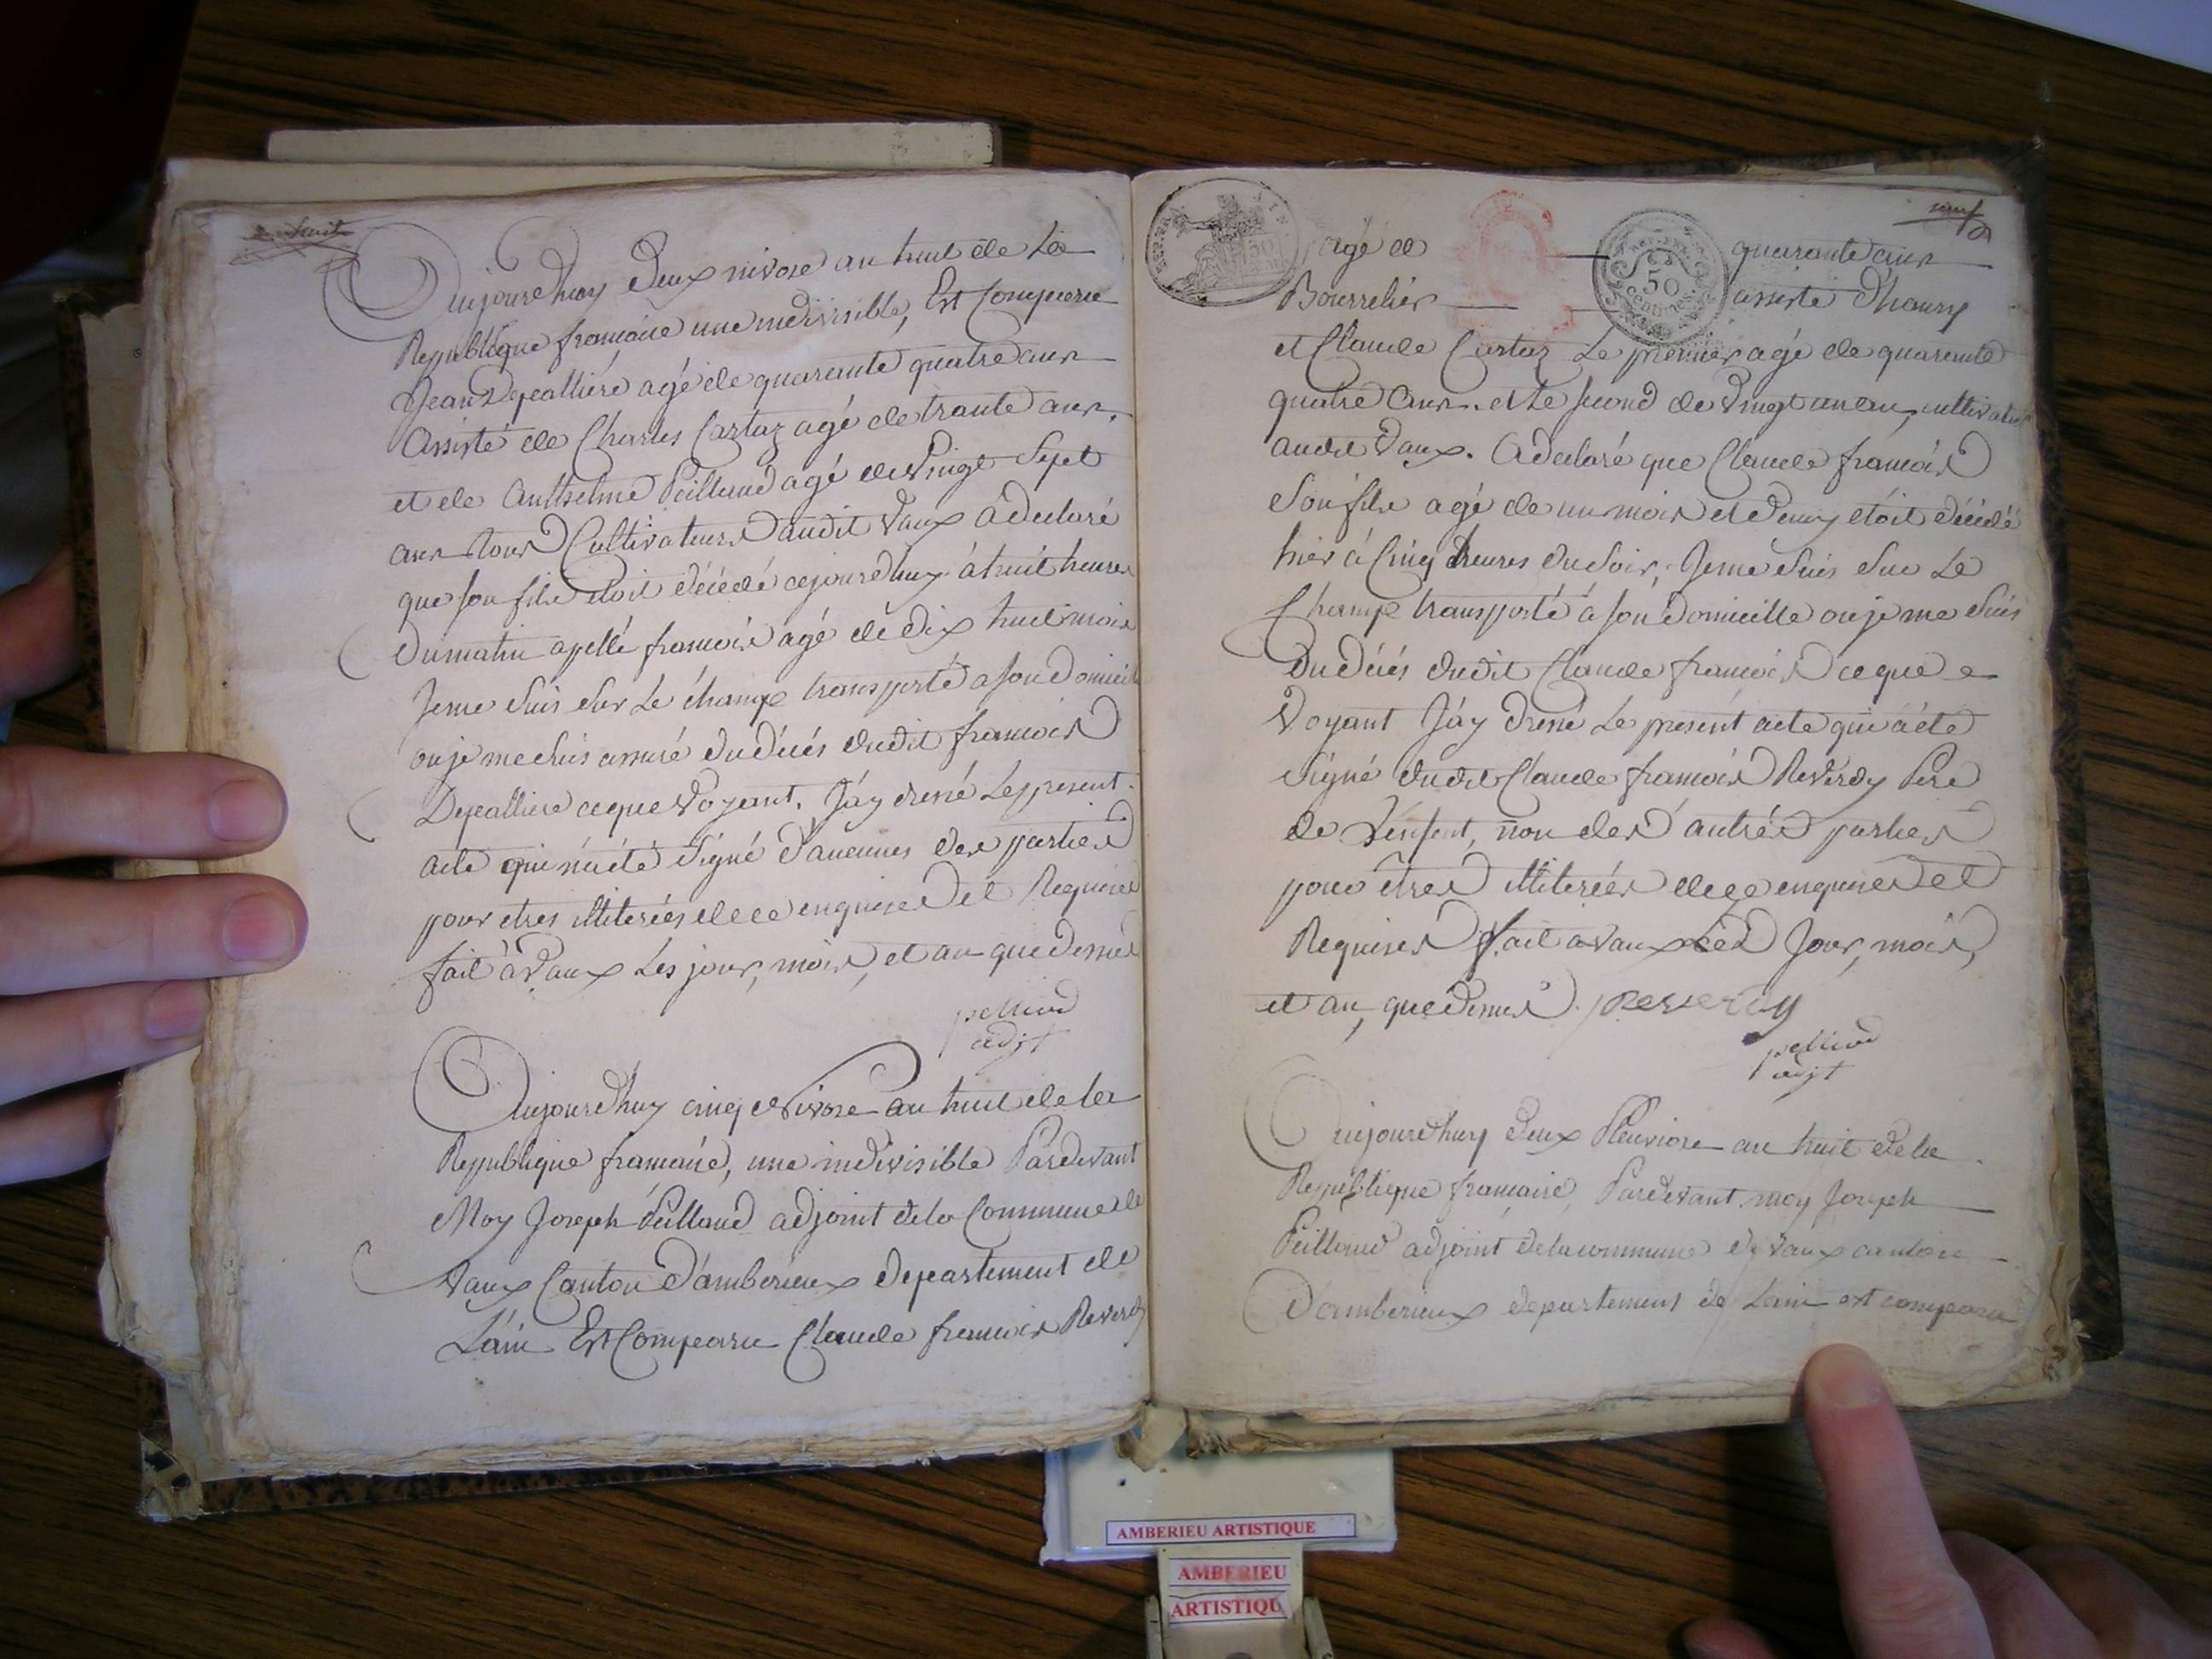 huit
Aujourdhuy deux nivose an huit de La
Republique francaise une indivisible, Est Comparu
Jean Depeallière agé de quarante quatre ans
Assisté de Charles Cartaz agé de trante ans.
et de Anthelme Peilloud agé de Vingt Sept
ans tous Cultivateurs audit Vaux à declaré
que son fils etoit décédé cejourdhuy à huit heures
du matin apellé francois agé de dix huit mois
Je me suis sur Le champ transporté a son Domicil
ou je me suis assuré du décés dudit francois
Depeallière ce que Voyant, J'ay dressé Le present
acte qui n'a été Signé d'aucunes des parties
pour etres illiterées de ce enquises et Requises
fait à Vaux Les jour, mois, et an que dessus
peilloud
adjt
Aujourdhuy cinq Nivose an huit de la
Republique francaise, une indivisible Pardevant
Moy Joseph Peilloud adjoint de la Commune de
Vaux Canton d'amberieux departement de
L'ain Est Comparu Claude francois Reverdy
neuf
REP. FRA.
50
agé de quarante ans
REP. FRA.
50
centimes
Bourrelier assisté d'haury
et Claude Cartaz Le premier agé de quarante
quatre ans. et Le second de Vingt un an, cultivateurs
audit Vaux. A declaré que Claude francois
Son fils agé de un mois et demy etoit décédé
hier à Cinq heures du Soir, Je me suis sur Le
Champ transporté à son Domicille ou je me suis
du décés dudit Claude francois ce que
Voyant J'ay dressé Le present acte qui a été
Signé dudit Claude francois Reverdy Pere
de L'enfent, non des autres parties
pour etres illiterées de ce enquises et
Requises fait a Vaux Les Jour, mois,
et an, que dessus. Reverdy
peilloud
adjt
Aujourdhuy deux Pluviose an huit de la
Republique francaise, Pardevant moy Joseph
Peilloud adjoint de la commune de Vaux canton
D'amberieux departement de Lain est comparu
AMBERIEU ARTISTIQUE
AMBERIEU
ARTISTIQU